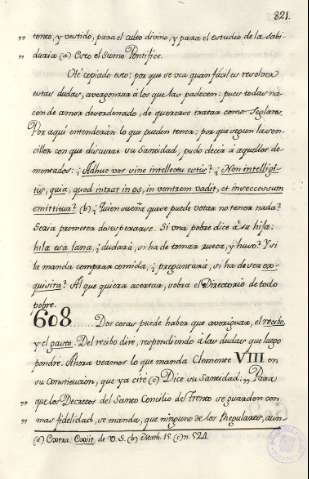 821.
,, tento, y vestido, para el culto divino, y para el estudio de la sabi-
,, duria (a) Esto el Sumo Pontifice.
He copiado esto; por que se vea quan facil es resolver
estas dudas, avergonzar á los que las padecen: pues todas na-
cen de amor desordenado, de quererse tratar como Seglares.
Por aqui entenderán lo que pueden tener: por que segun la sen-
cillez con que discurre su Santidad, pudo decir á aquellos de-
mentados: ¿Adhuc vos sine intellectu estis? ¿Non intelligi-
tis, quia, quod intrat in os, in ventrem vadit, et in secessum
emittitur? (b) ¿Quien sueña que se puede votar no tener nada?
Seria prometer de esperarse. Si una pobre dice á su hija:
hila esa lana, ¿dudará, si ha de tomar rueca, y huso? Y si
le manda comprar comida, ¿preguntará, si ha de ser ex-
quisita? Al que quiera acertar, sobra el Directorio de todo
pobre.
608 Dos cosas puede haber que averiguar, el recibo
y el gasto. Del recibo diré, respondiendo á las dudas que luego
pondré. Ahora veamos lo que manda Clemente VIII en
su Constitucion, que ya cité (c) Dice su Santidad: ,, Para
,, que los Decretos del Santo Concilio de Trento se guarden con
,, mas fidelidad, se manda, que ninguno de los Regulares, aun
(a) Contra (b) Matth. 15. (c) n. 524.